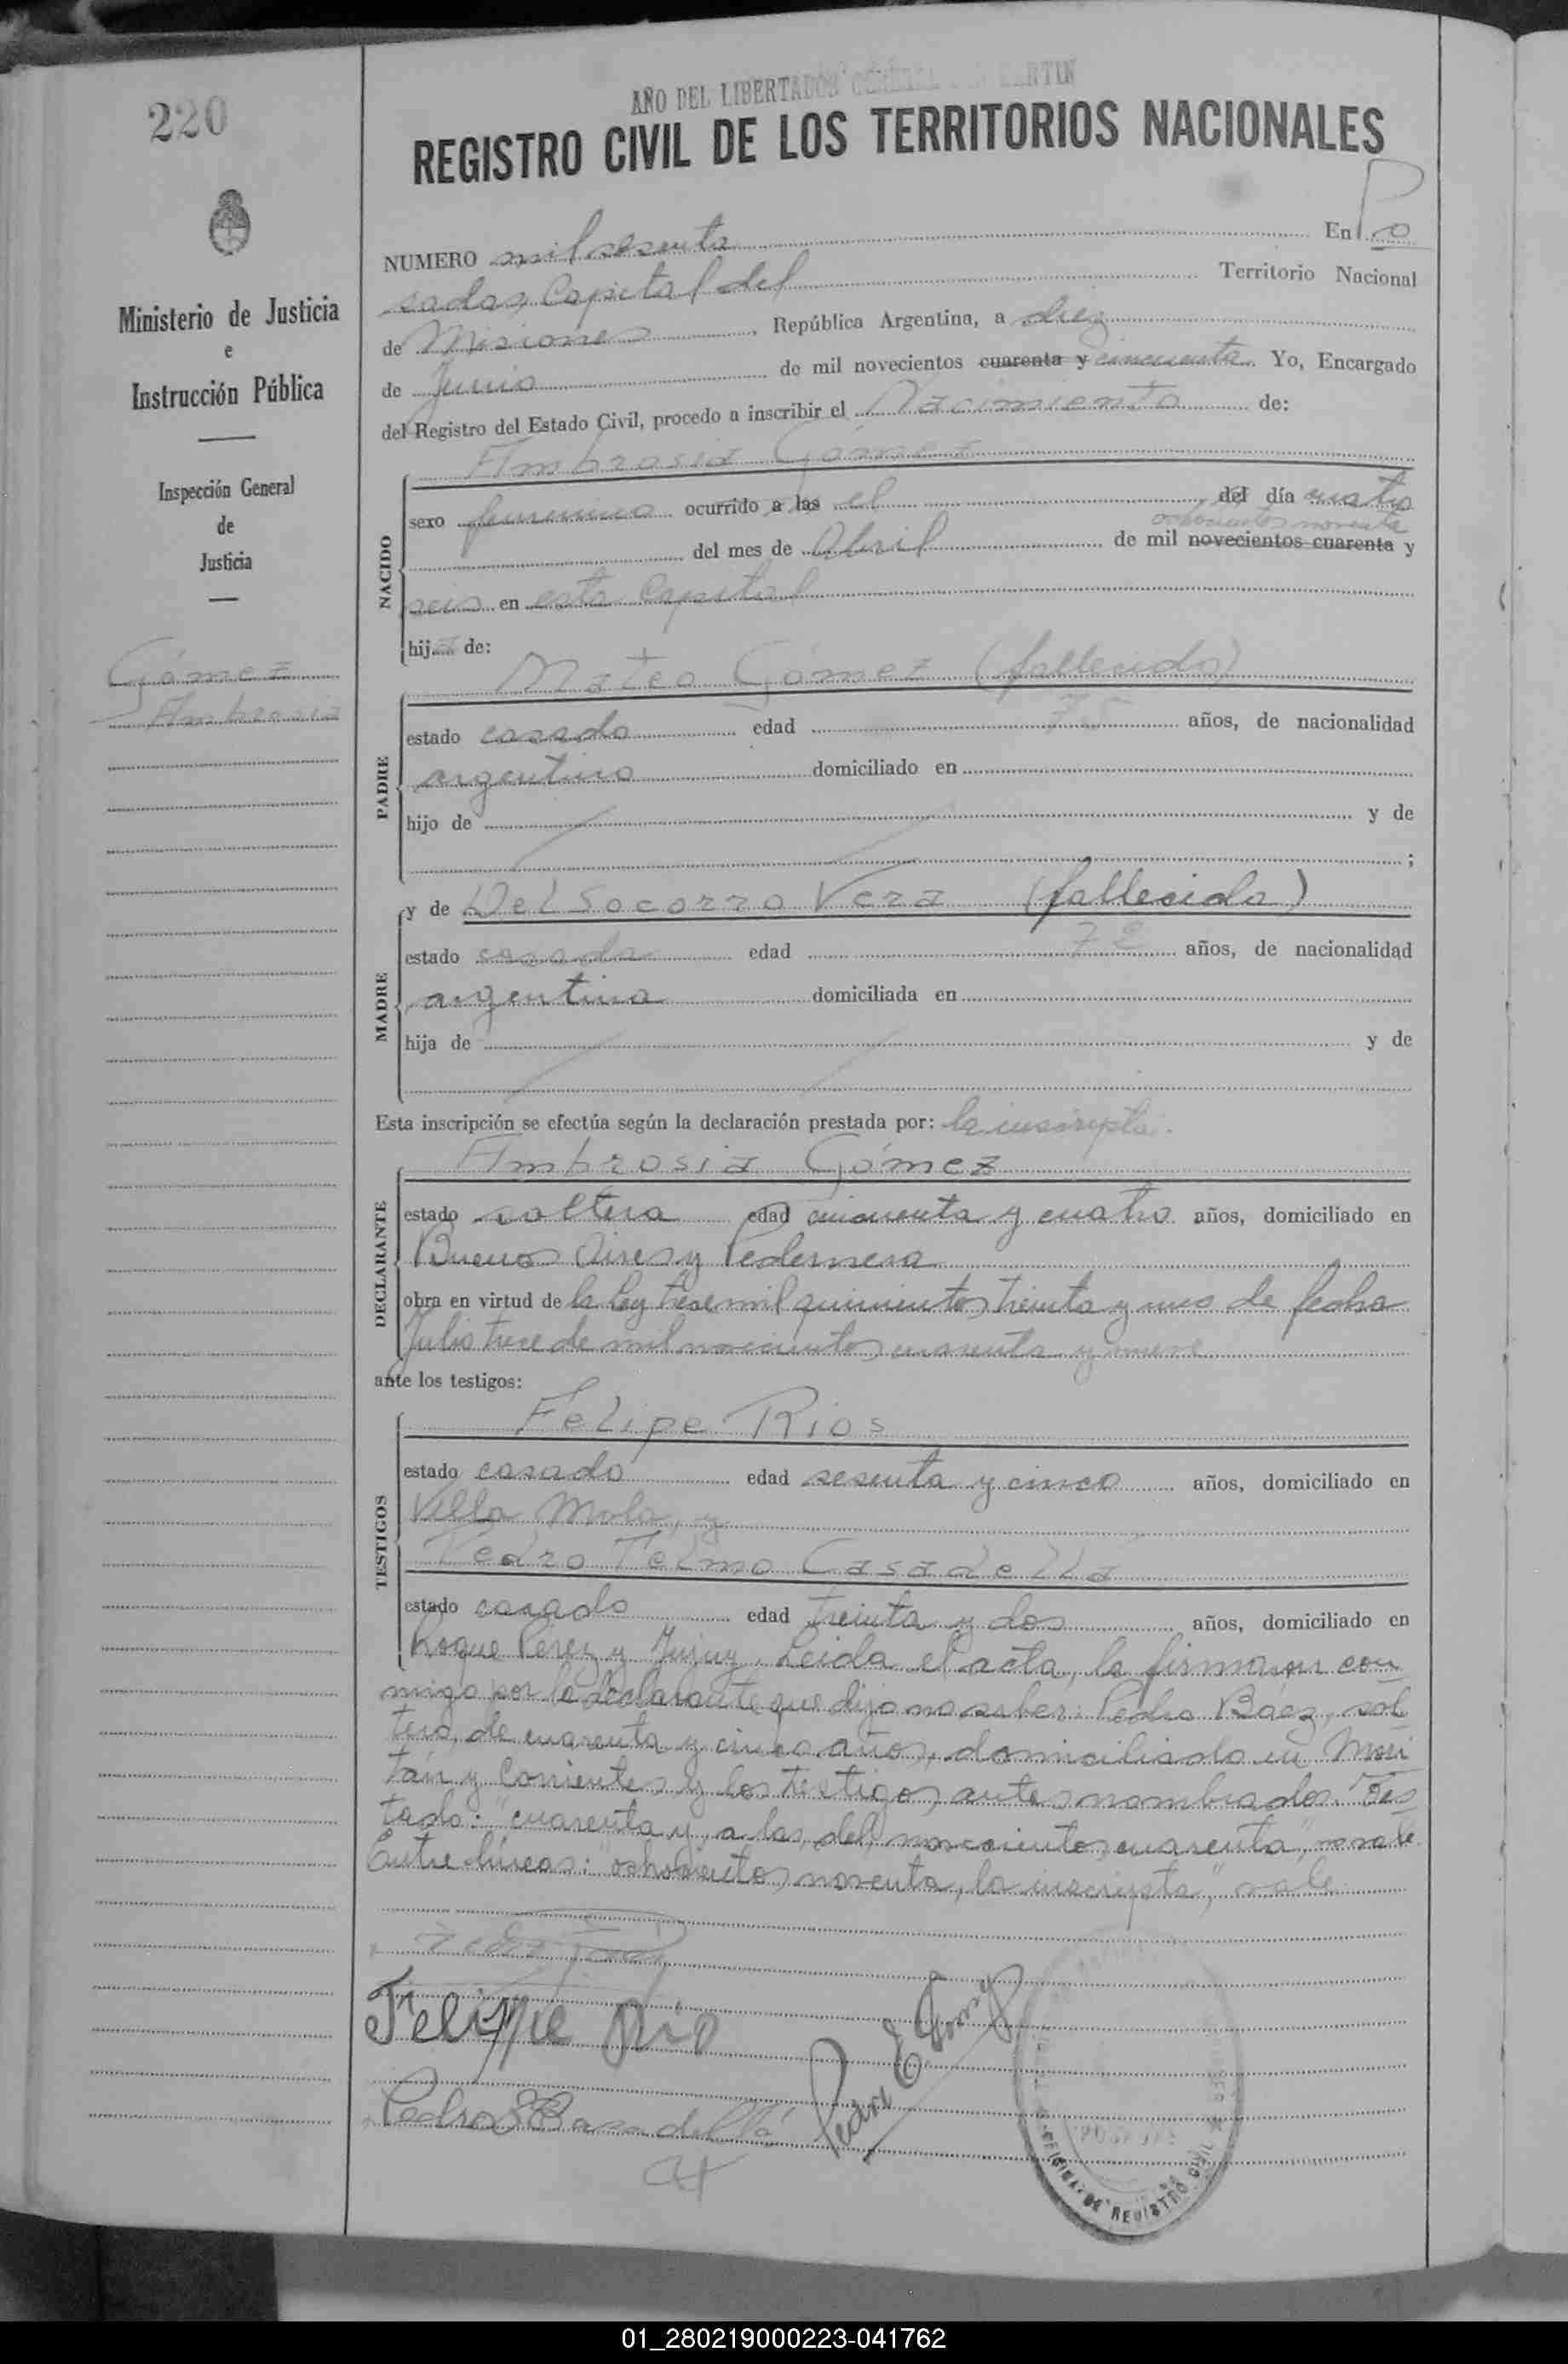 220
AÑO DEL LIBERTADOR GENERAL SAN MARTIN
REGISTRO CIVIL DE LOS TERRITORIOS NACIONALES
Ministerio de Justicia
e
Instrucción Pública
Inspección General
de
Justicia
Gómez
Ambrosia
NUMERO mil sesenta En Po
sadas, Capital del Territorio Nacional
de Misiones, República Argentina, a diez
de Junio de mil novecientos cuarenta y cincuenta Yo, Encargado
del Registro del Estado Civil, procedo a inscribir el Nacimiento de:
NACIDO
Ambrosia Gómez
sexo femenino ocurrido a las el del día cuatro
ochocientos noventa
del mes de Abril de mil novecientos cuarenta y
seis en esta Capital
hija de:
PADRE
Mateo Gómez (fallecido)
estado casado edad 75 años, de nacionalidad
argentino domiciliado en
hijo de y de
;
MADRE
y de Del Socorro Vera (fallecida)
estado casada edad 72 años, de nacionalidad
argentina domiciliada en
hija de y de
Esta inscripción se efectúa según la declaración prestada por: la inscripta.
DECLARANTE
Ambrosia Gómez
estado soltera edad cincuenta y cuatro años, domiciliado en
Buenos Aires y Pedernera
obra en virtud de la ley trece mil quinientos treinta y uno de fecha
Julio trece de mil novecientos cuarenta y nueve
ante los testigos:
TESTIGOS
Felipe Rios
estado casado edad sesenta y cinco años, domiciliado en
Villa Mola, y
Pedro Telmo Casadella
estado casado edad treinta y dos años, domiciliado en
Roque Pérez y Jujuy. Leida el acta, la firmaron con
migo por la declarante que dijo no saber: Pedro Báez, sol
tero, de cuarenta y cinco años, domiciliado en Mori
tán y Corrientes y los testigos antes nombrados. Tes
tado: "cuarenta y, a las, del, novecientos cuarenta", no vale
Entre líneas: "ochocientos noventa, la inscripta", vale
Felippe Rio
Pedro E Gomez
OFICINA DE REGISTRO CIVIL
POSADAS
01_280219000223-041762